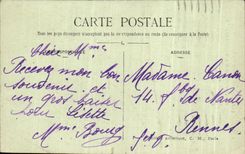 CARTE POSTALE
Tous les pays étrangers n'acceptent pas la correspondance au recto (se renseigner à la Poste)
Chère Mme
ADRESSE
Recevez mon bon
souvenir et
un gros baiser
pour Lisette
Mme Bourg
Madame Canon
14. fbg de Nantes
Rennes